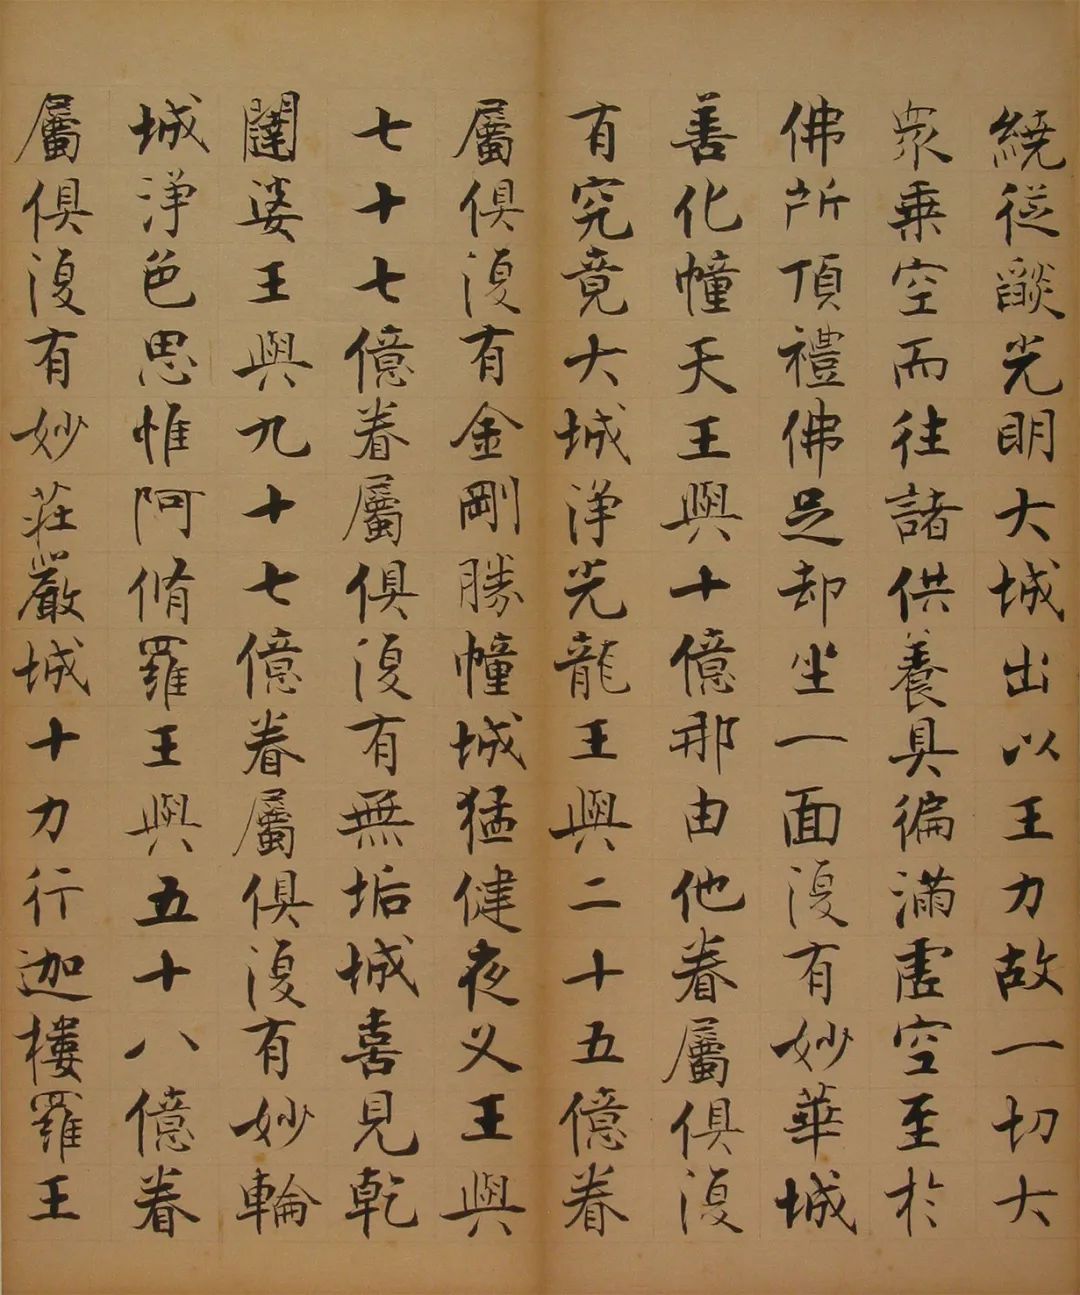 繞從燄光明大城出以王力故一切大
衆乗空而往諸供養具徧滿虛空至於
佛所頂禮佛足却坐一面復有妙華城
善化幢天王與十億那由他眷屬俱復
有究竟大城淨光龍王與二十五億眷
屬俱復有金剛勝幢城猛健夜义王與
七十七億眷屬俱復有無垢城喜見乾
闥婆王與九十七億眷屬俱復有妙輪
城淨色思惟阿脩羅王與五十八億眷
屬俱復有妙莊嚴城十力行迦樓羅王